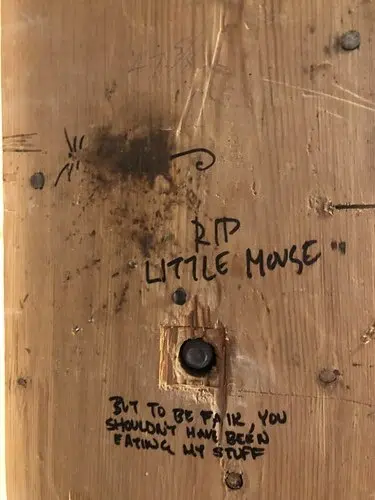 RIP
LITTLE MOUSE "
BUT TO BE FAIR, YOU
SHOULDNT HAVE BEEN
EATING MY STUFF